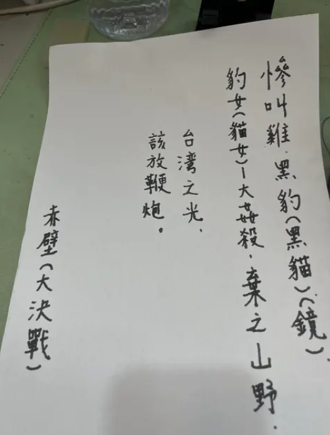 慘叫雞.黑豹(黑貓)(鏡)
豹女(貓女)-大姦殺.棄之山野.
台湾之光,
該放鞭炮。
赤壁(大決戰)